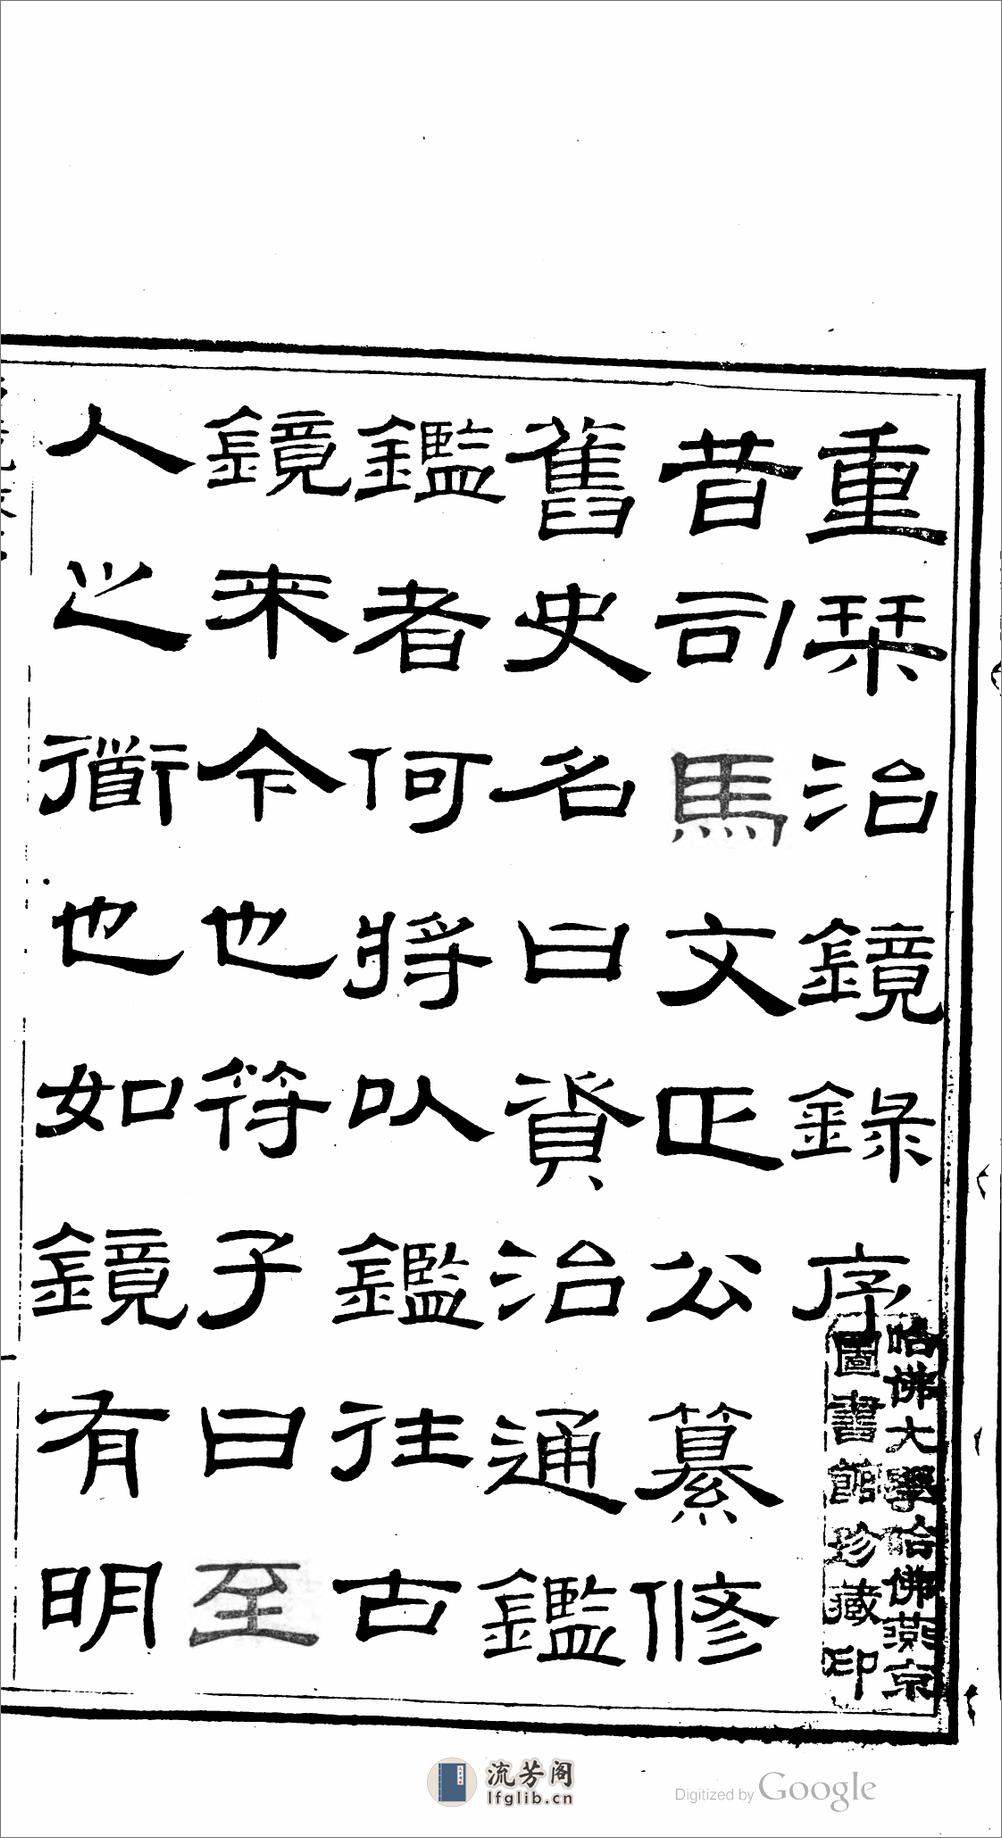 重栞治鏡錄序
昔司馬文正公纂修
舊史名曰資治通鑑
鑑者何將以鑑往古
鏡來今也符子曰至
人之衜也如鏡有明
哈佛大學哈佛燕京
圖書館珍藏印
流芳阁
lfglib.cn
Digitized by Google